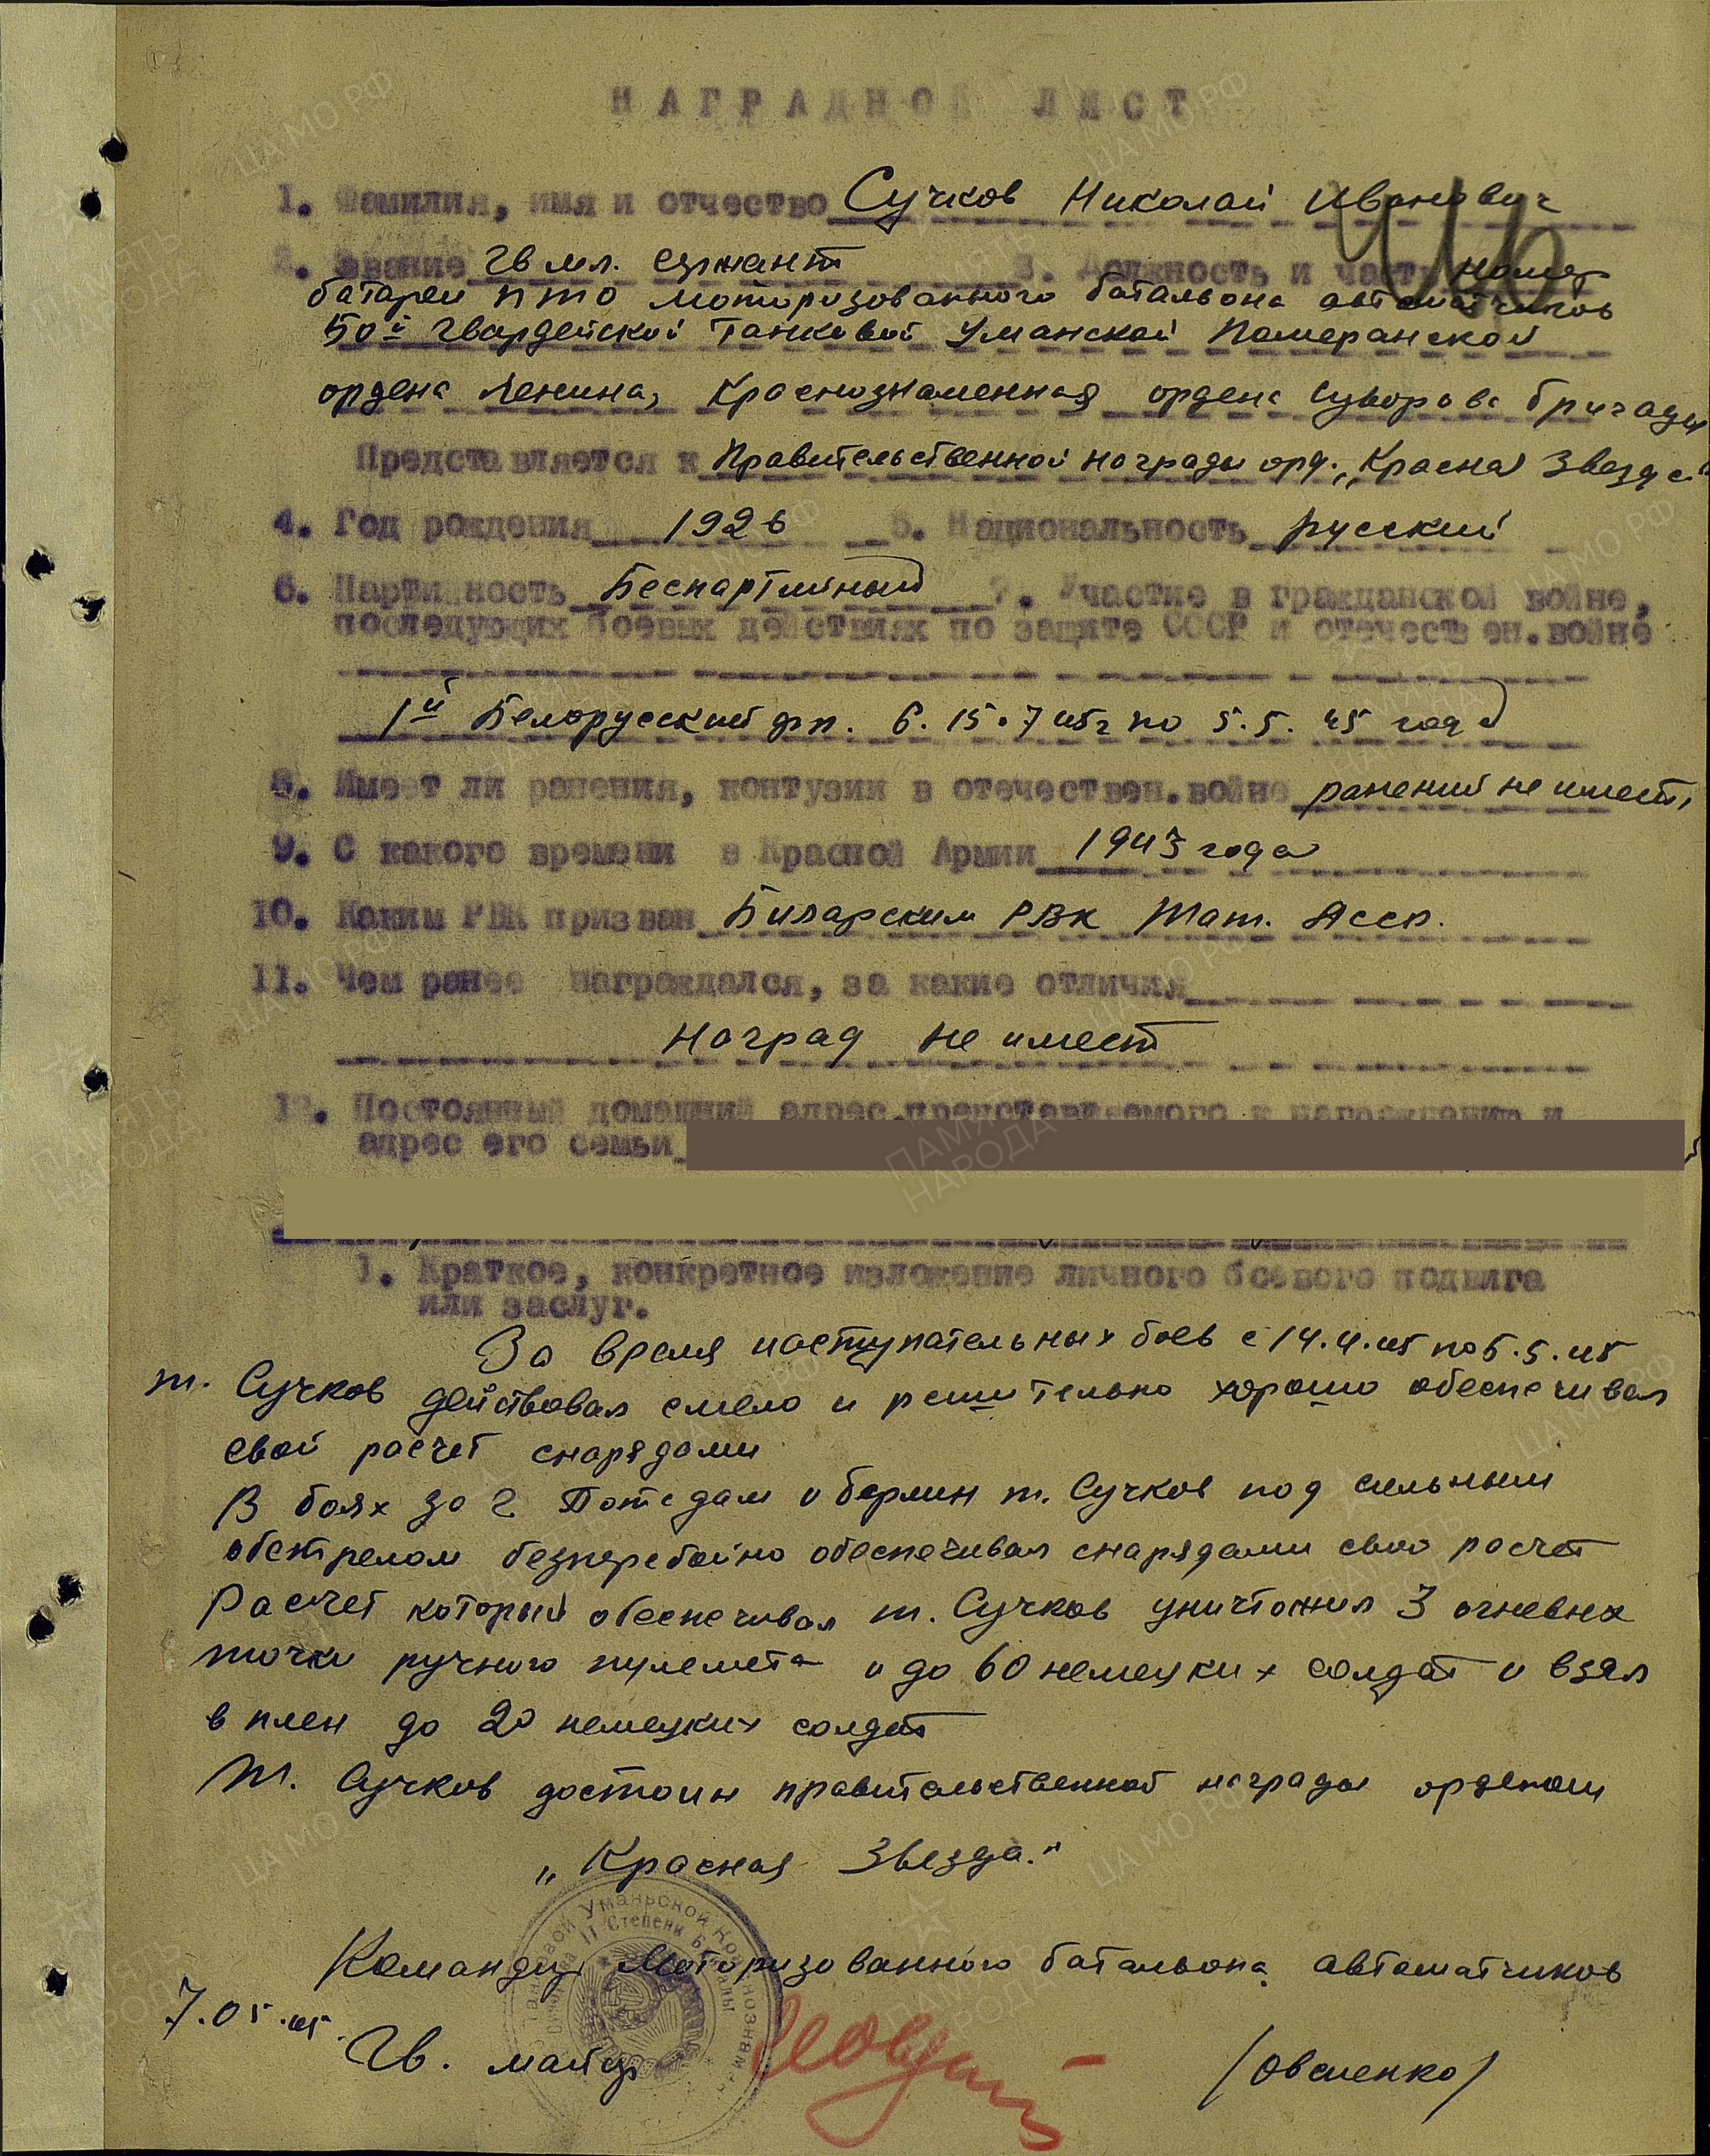 НАГРАДНОЙ ЛИСТ
1. Фамилия, имя и отчество Сучков Николай Иванович
2. Звание Гв мл. сержант 3. Должность и часть номер
батареи ПТО моторизованного батальона автоматчиков
50й Гвардейской Танковой Уманской Померанской
ордена Ленина, Краснознаменная ордена Суворова бригады
Представляется к Правительственной награды орд. „Красная Звезда"
4. Год рождения 1926 5. Национальность русский
6. Партийность Беспартийный 7. Участие в гражданской войне,
последующих боевых действиях по защите СССР и отечествен.войне
1й Белорусский фр. с 15.7 45г по 5.5. 45 года
8. Имеет ли ранения, контузии в отечествен.войне ранений не имеет,
9. С какого времени в Красной Армии 1943 года
10. Каким РВК призван Билярским РВК Тат. Асср.
11. Чем ранее награждался, за какие отличия
наград не имеет
12. Постоянный домашний адрес представляемого к награждению и
адрес его семьи
1. Краткое, конкретное изложение личного боевого подвига
или заслуг.
За время наступательных боев с 14.4.45 по 5.5.45
т. Сучков действовал смело и решительно хорошо обеспечивал
свой расчет снарядами
В боях за г Потсдам и берлин т. Сучков под сильным
обстрелом безперебойно обеспечивал снарядами свой расчет
Расчет который обеспечивал т. Сучков уничтожил 3 огневых
точки ручного пулемета и до 60 немецких солдат и взял
в плен до 20 немецких солдат
Т. Сучков достоин правительственной награды орденом
„Красная Звезда."
Командир Моторизованного батальона автоматчиков
7.05.45.
Гв. майор
/Овсиенко/
Танковой Уманьской Краснознамен
II Степени Бригады
ПАМЯТЬ НАРОДА
ЦА МО РФ